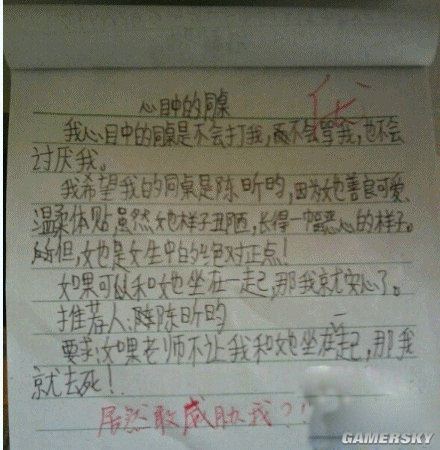 心目中的同桌
我心目中的同桌是不会打我,不会骂我,也不会
讨厌我。
我希望我的同桌是陈昕昀,因为她善良可爱、
温柔体贴,虽然她样子丑陋,长得一幅恶心的样子。
但,她是女生中的绝对正点!
如果可以和她坐在一起,那我就安心了。
推荐人:陈昕昀
要求:如果老师不让我和她坐在一起,那我
就去死!
居然敢威胁我?!
GAMERSKY